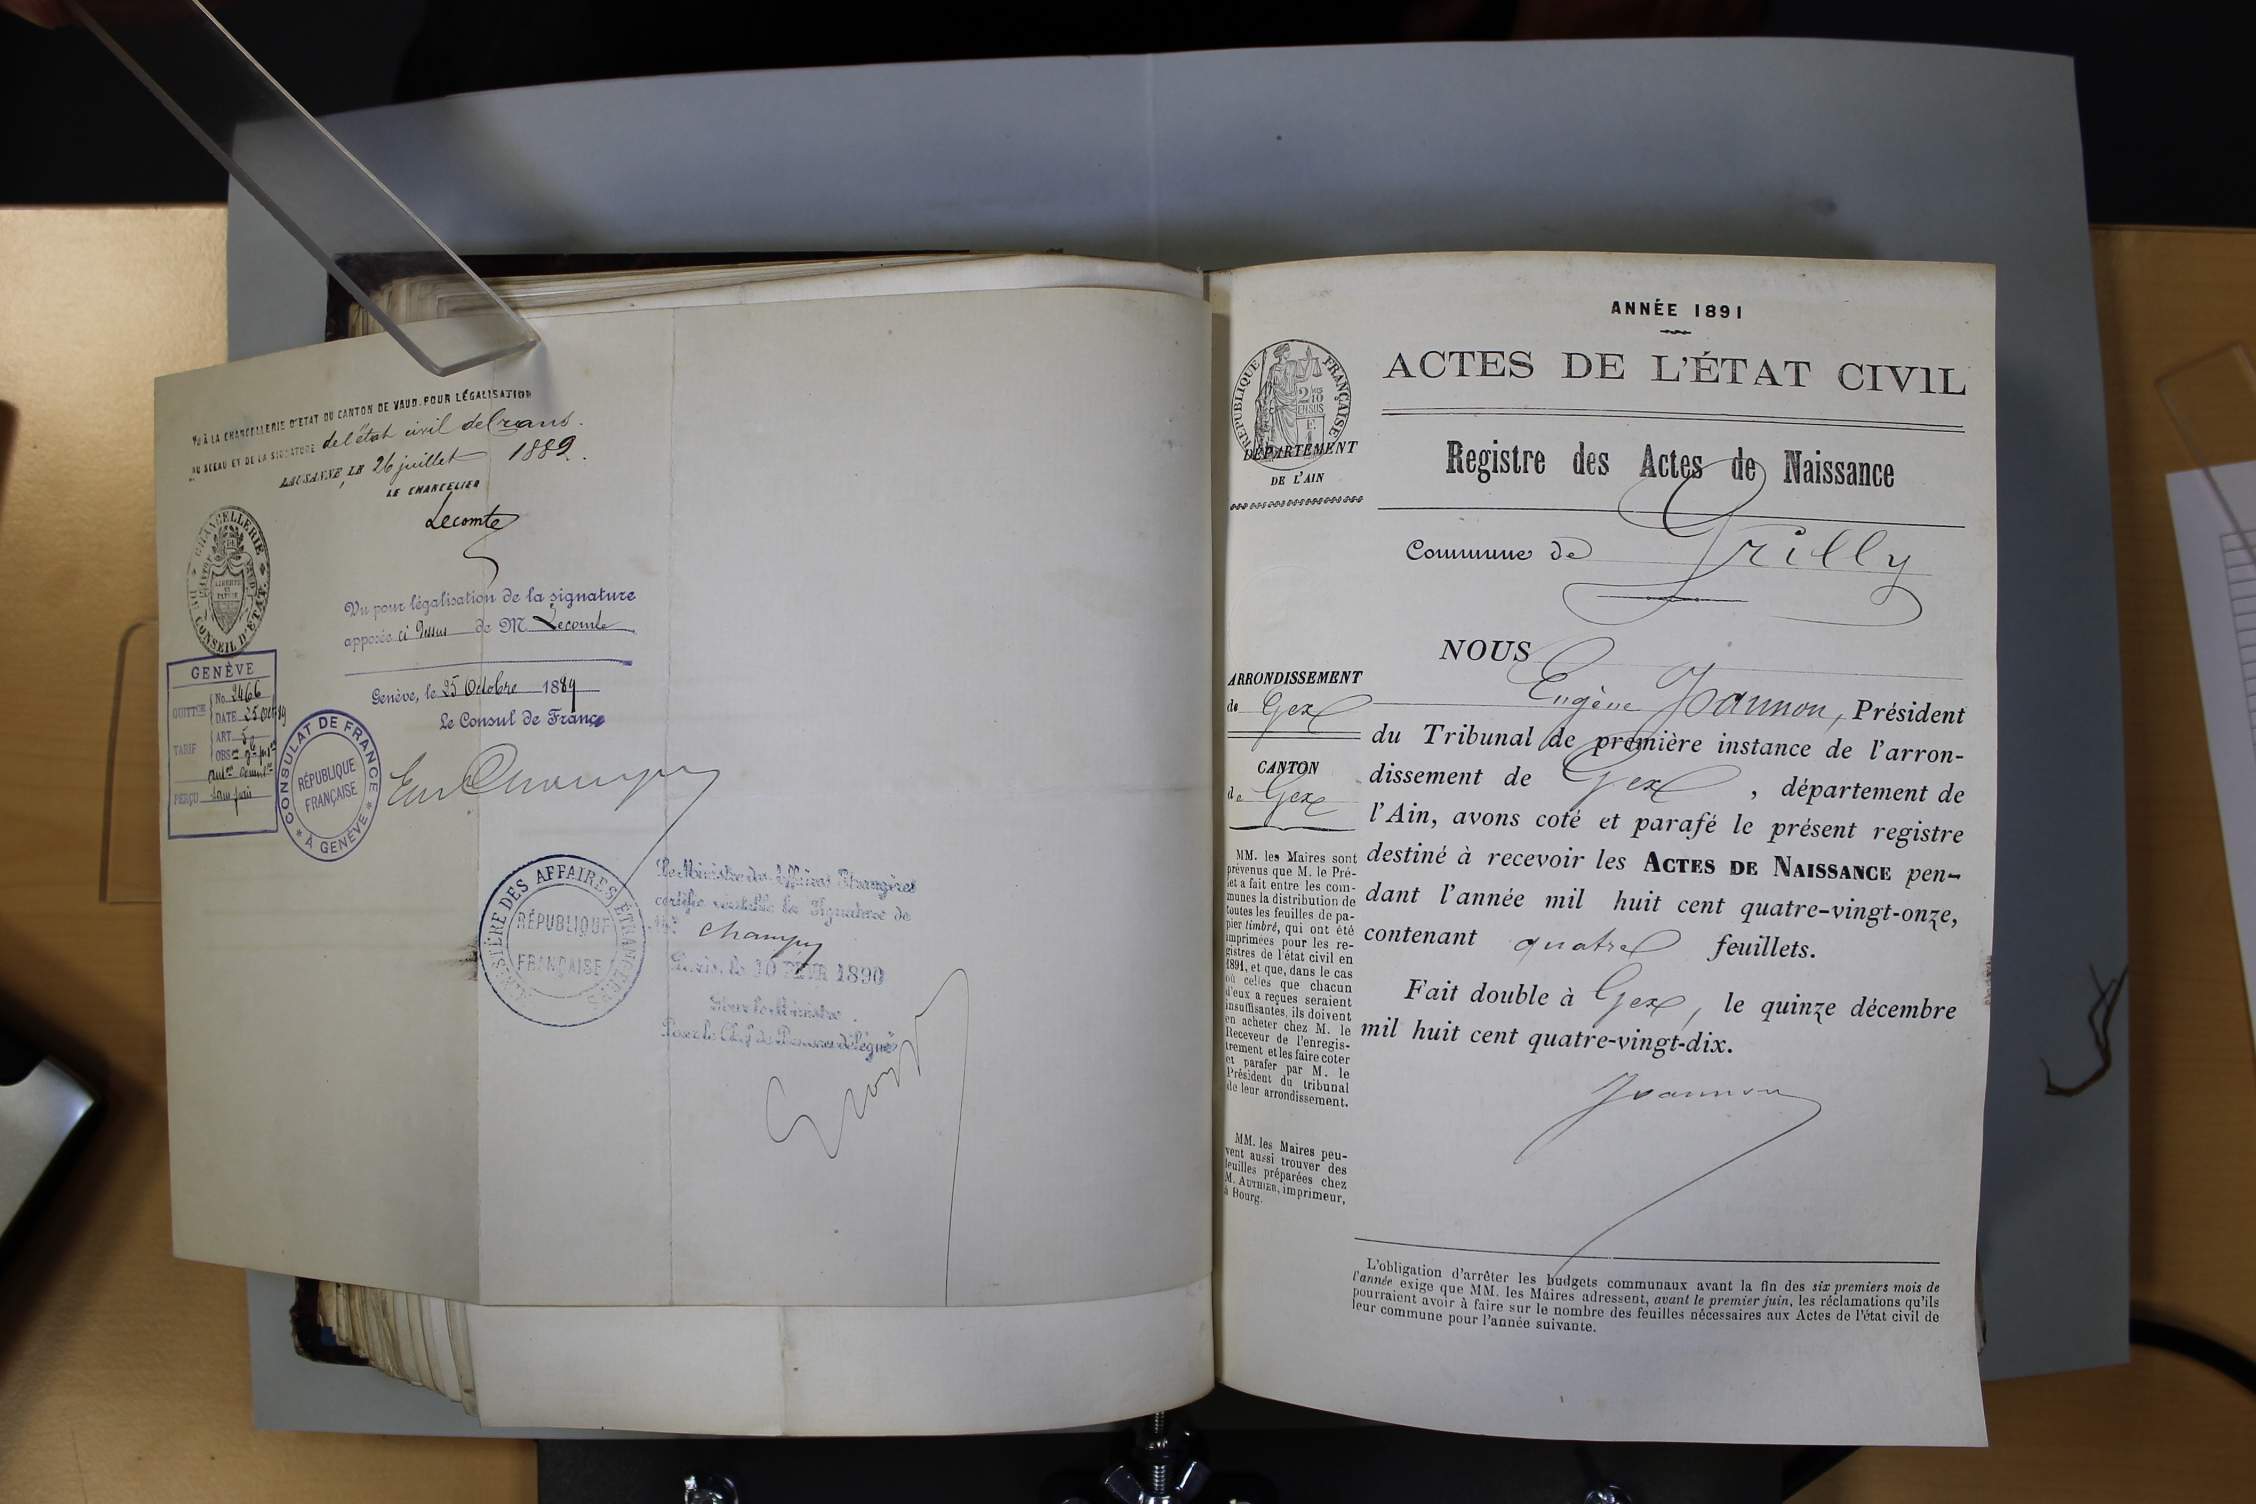 VU À LA CHANCELLERIE D'ETAT DU CANTON DE VAUD, POUR LÉGALISATION
DU SCEAU ET DE LA SIGNATURE de l'état civil de Crans.
LAUSANNE, LE 26 juillet 1889.
LE CHANCELIER
Lecomte
CHANCELLERIE DU CONSEIL D'ÉTAT
CANTON DE VAUD
LIBERTÉ ET PATRIE
Vu pour légalisation de la signature
apposée ci dessus de M. Lecomte
Genève, le 25 Octobre 1889
Le Consul de France
GENÈVE
QUITTCE No 2466
DATE 25 Oct 89
TARIF ART.
OBS
PERÇU
CONSULAT DE FRANCE
* À GENÈVE *
RÉPUBLIQUE
FRANÇAISE
MINISTÈRE DES AFFAIRES ÉTRANGÈRES
RÉPUBLIQUE
FRANÇAISE
Le Ministre des Affaires Etrangères
certifie véritable la signature de
Mr Champy
Paris, le 10 FÉVR 1890
Pour le Ministre
Pour le Chef de Bureau délégué
ANNÉE 1891
RÉPUBLIQUE FRANÇAISE
ACTES DE L'ÉTAT CIVIL
DÉPARTEMENT
DE L'AIN
Registre des Actes de Naissance
Commune de Grilly
NOUS
ARRONDISSEMENT
de Gex
CANTON
de Gex
Eugène Joannon, Président
du Tribunal de première instance de l'arron-
dissement de Gex, département de
l'Ain, avons coté et parafé le présent registre
destiné à recevoir les ACTES DE NAISSANCE pen-
dant l'année mil huit cent quatre-vingt-onze,
contenant quatre feuillets.
Fait double à Gex, le quinze décembre
mil huit cent quatre-vingt-dix.
Joannon
MM. les Maires sont
prévenus que M. le Pré-
fet a fait entre les com-
munes la distribution de
toutes les feuilles de pa-
pier timbré, qui ont été
imprimées pour les re-
gistres de l'état civil en
1891, et que, dans le cas
où celles que chacun
d'eux a reçues seraient
insuffisantes, ils doivent
en acheter chez M. le
Receveur de l'enregis-
trement et les faire coter
et parafer par M. le
Président du tribunal
de leur arrondissement.
MM. les Maires peu-
vent aussi trouver des
feuilles préparées chez
M. AUTHIER, imprimeur,
à Bourg.
L'obligation d'arrêter les budgets communaux avant la fin des six premiers mois de
l'année exige que MM. les Maires adressent, avant le premier juin, les réclamations qu'ils
pourraient avoir à faire sur le nombre des feuilles nécessaires aux Actes de l'état civil de
leur commune pour l'année suivante.